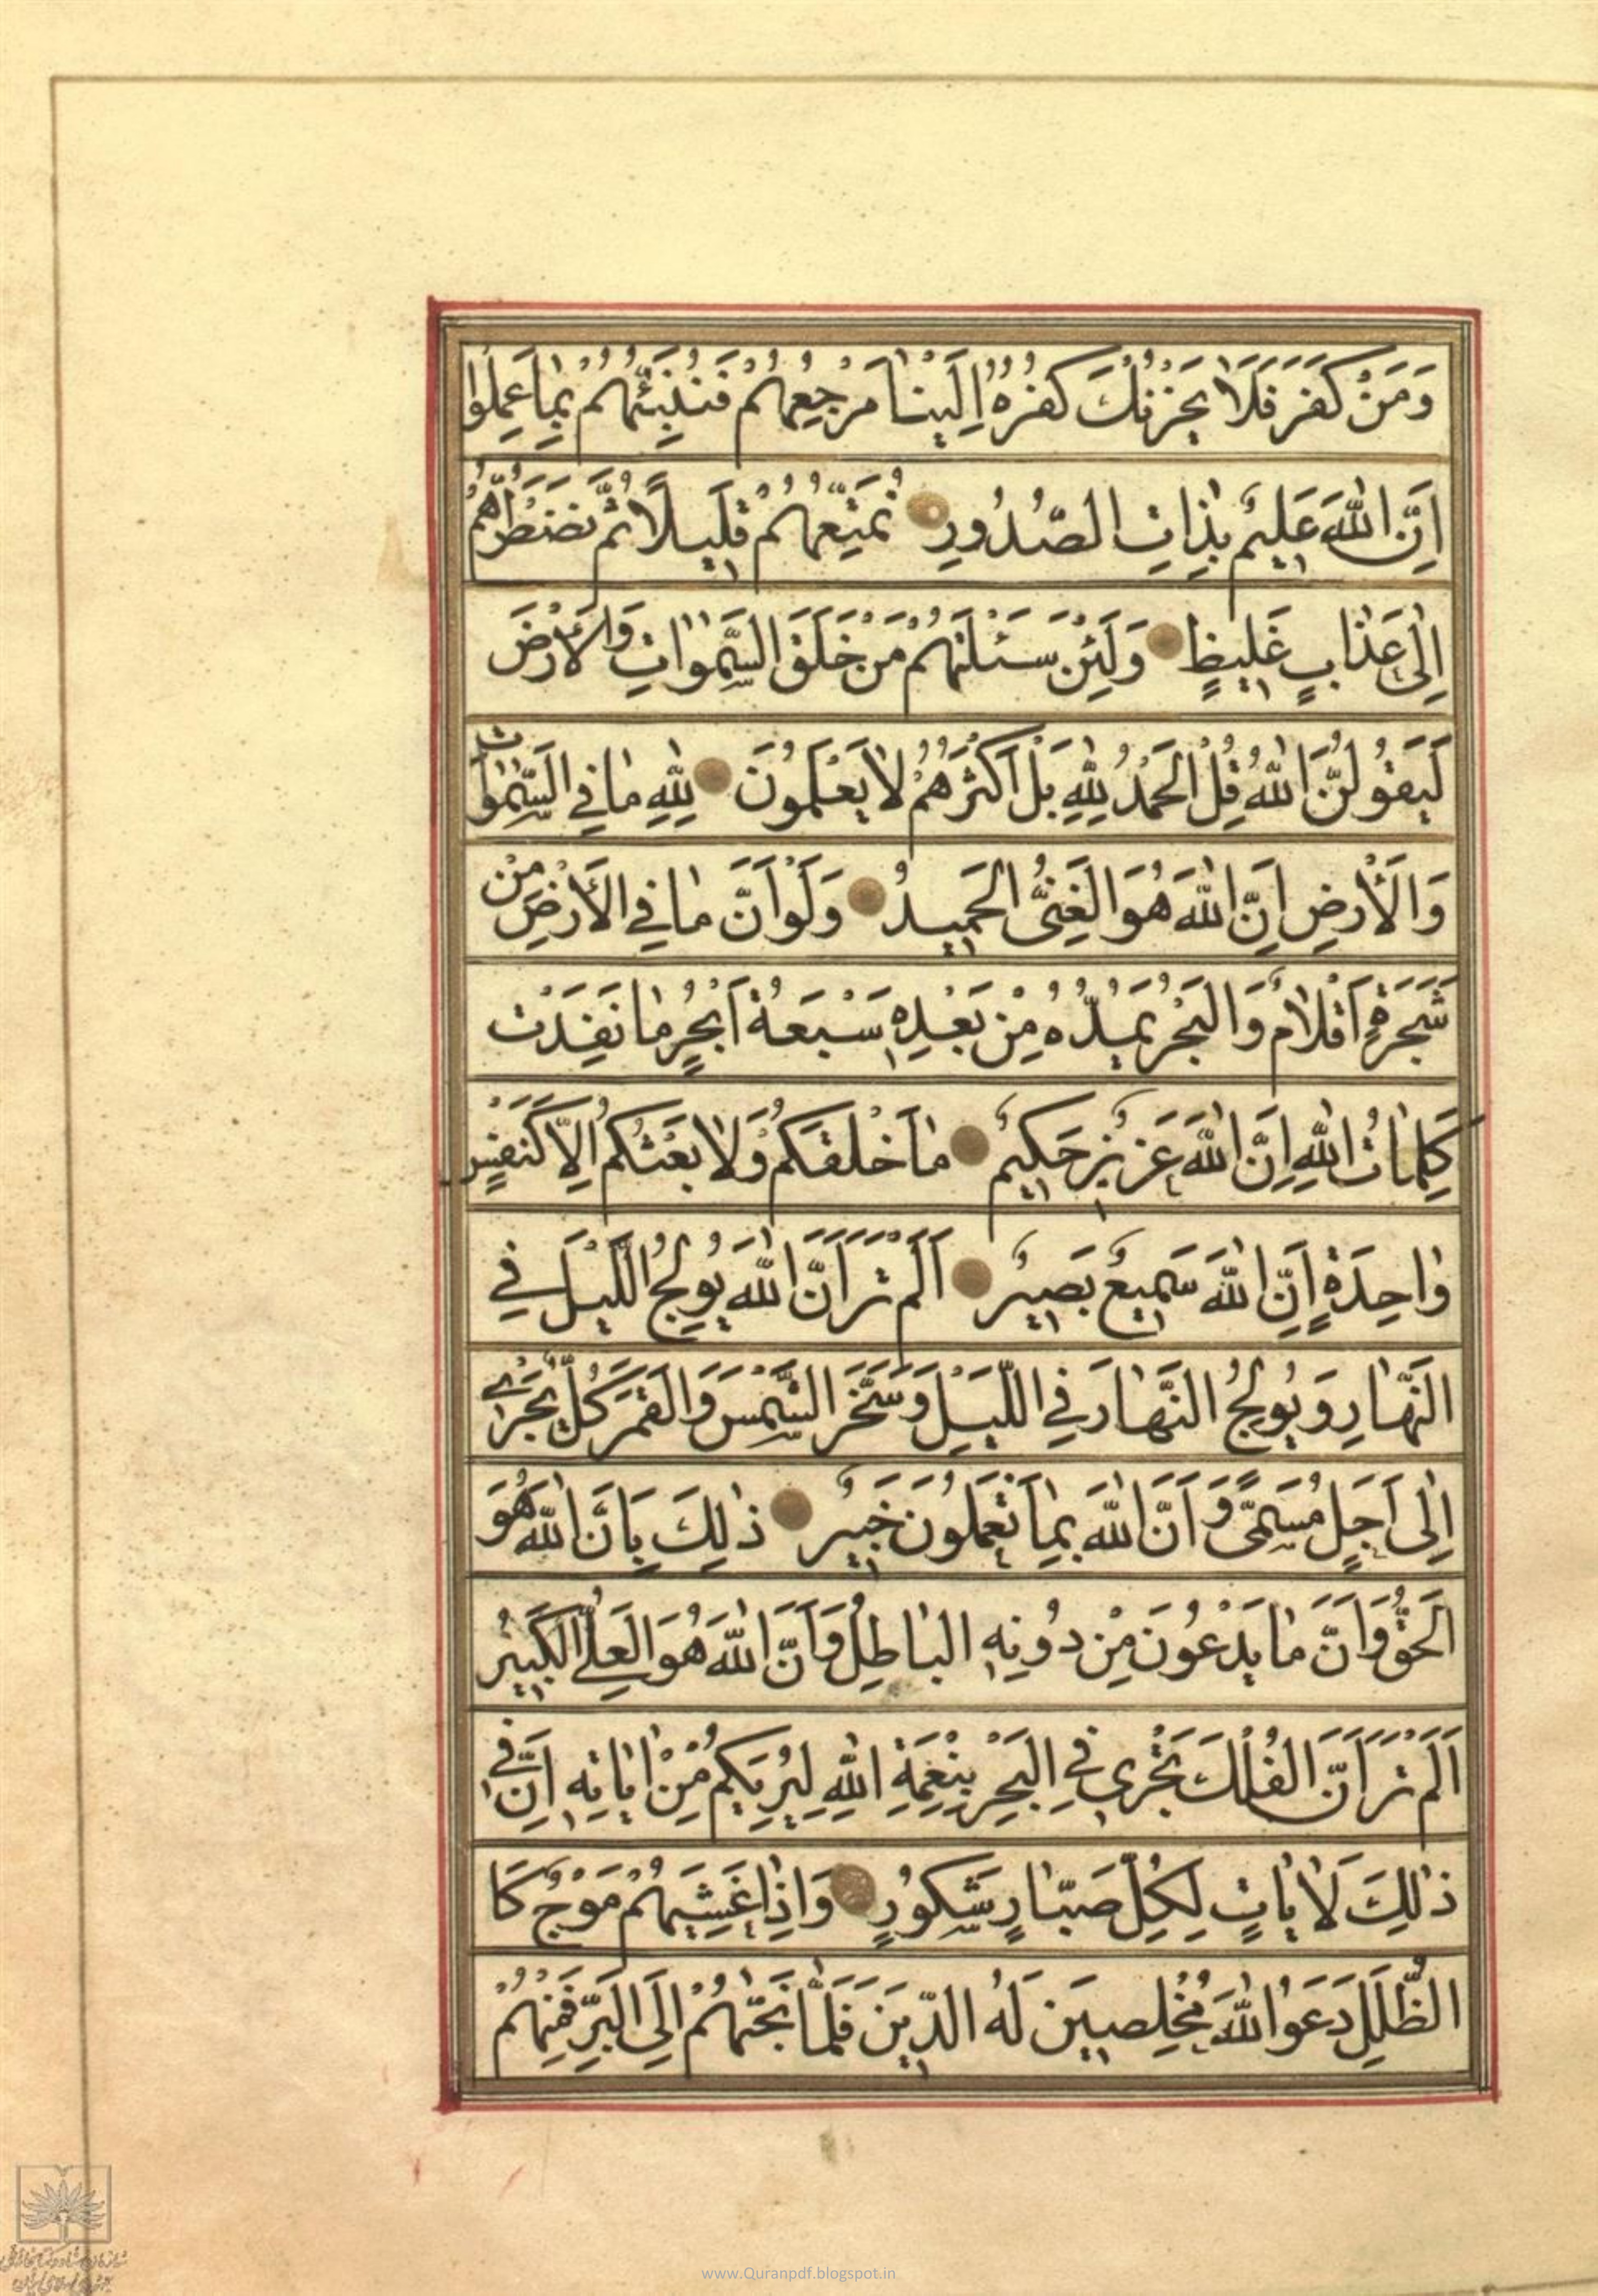 وَمَنْ كَفَرَ فَلَا يَحْزُنْكَ كُفْرُهُ اِلَيْنَا مَرْجِعُهُمْ فَنُنَبِّئُهُمْ بِمَا عَمِلُوا
اِنَّ اللّٰهَ عَلِيمٌ بِذَاتِ الصُّدُورِ نُمَتِّعُهُمْ قَلِيلًا ثُمَّ نَضْطَرُّهُمْ
اِلٰى عَذَابٍ غَلِيظٍ وَلَئِنْ سَئَلْتَهُمْ مَنْ خَلَقَ السَّمٰوَاتِ وَالْاَرْضَ
لَيَقُولُنَّ اللّٰهُ قُلِ الْحَمْدُ لِلّٰهِ بَلْ اَكْثَرُهُمْ لَا يَعْلَمُونَ لِلّٰهِ مَا فِي السَّمٰوَاتِ
وَالْاَرْضِ اِنَّ اللّٰهَ هُوَ الْغَنِيُّ الْحَمِيدُ وَلَوْ اَنَّ مَا فِي الْاَرْضِ مِنْ
شَجَرَةٍ اَقْلَامٌ وَالْبَحْرُ يَمُدُّهُ مِنْ بَعْدِهِ سَبْعَةُ اَبْحُرٍ مَا نَفِدَتْ
كَلِمَاتُ اللّٰهِ اِنَّ اللّٰهَ عَزِيزٌ حَكِيمٌ مَا خَلْقُكُمْ وَلَا بَعْثُكُمْ اِلَّا كَنَفْسٍ
وَاحِدَةٍ اِنَّ اللّٰهَ سَمِيعٌ بَصِيرٌ اَلَمْ تَرَ اَنَّ اللّٰهَ يُولِجُ اللَّيْلَ فِي
النَّهَارِ وَيُولِجُ النَّهَارَ فِي اللَّيْلِ وَسَخَّرَ الشَّمْسَ وَالْقَمَرَ كُلٌّ يَجْرِي
اِلٰى اَجَلٍ مُسَمًّى وَاَنَّ اللّٰهَ بِمَا تَعْمَلُونَ خَبِيرٌ ذٰلِكَ بِاَنَّ اللّٰهَ هُوَ
الْحَقُّ وَاَنَّ مَا يَدْعُونَ مِنْ دُونِهِ الْبَاطِلُ وَاَنَّ اللّٰهَ هُوَ الْعَلِيُّ الْكَبِيرُ
اَلَمْ تَرَ اَنَّ الْفُلْكَ تَجْرِي فِي الْبَحْرِ بِنِعْمَةِ اللّٰهِ لِيُرِيَكُمْ مِنْ اٰيَاتِهِ اِنَّ فِي
ذٰلِكَ لَاٰيَاتٍ لِكُلِّ صَبَّارٍ شَكُورٍ وَاِذَا غَشِيَهُمْ مَوْجٌ كَا
لظُّلَلِ دَعَوُا اللّٰهَ مُخْلِصِينَ لَهُ الدِّينَ فَلَمَّا نَجّٰيهُمْ اِلَى الْبَرِّ فَمِنْهُمْ
www.Quranpdf.blogspot.in